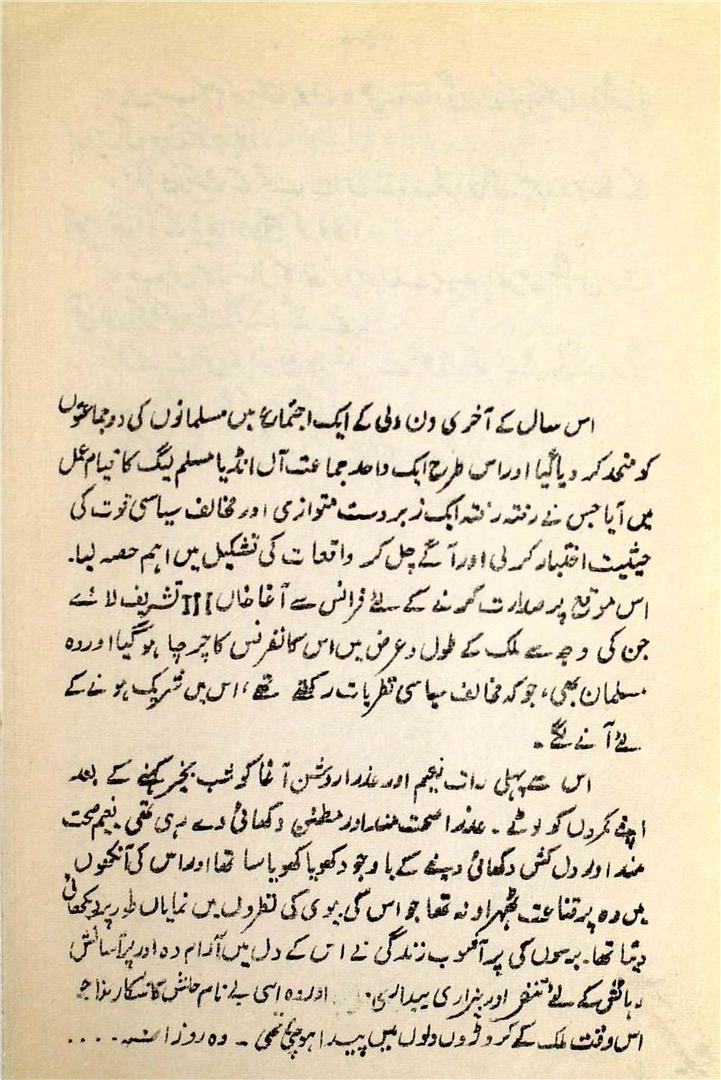 اس سال کے آخری دن دلی کے ایک اجتماع میں مسلمانوں کی دو جماعتوں
کو متحد کر دیا گیا اور اس طرح ایک واحد جماعت آل انڈیا مسلم لیگ کا قیام عمل
میں آیا جس نے رفتہ رفتہ ایک زبردست متوازی اور مخالف سیاسی قوت کی
حیثیت اختیار کر لی اور آگے چل کر واقعات کی تشکیل میں اہم حصہ لیا۔
اس موقع پر صدارت کرنے کے لئے فرانس سے آغا خاں III تشریف لائے
جن کی وجہ سے ملک کے طول و عرض میں اس کانفرنس کا چرچا ہو گیا اور وہ
مسلمان بھی، جو کہ مخالف سیاسی نظریات رکھتے تھے، اس میں شریک ہونے کے
لئے آنے لگے۔
اس سے پہلی رات نعیم اور عذرا روشن آغا کو شب بخیر کہنے کے بعد
اپنے کمروں کو لوٹے۔ عذرا صحت مند اور مطمئن دکھائی دے رہی تھی۔ نعیم صحت
مند اور دل کش دکھائی دینے کے باوجود کھویا کھویا سا تھا اور اس کی آنکھوں
میں وہ پر قناعت ٹھہراو نہ تھا جو اس کی بیوی کی نظروں میں نمایاں طور پر دکھائی
دیتا تھا۔ برسوں کی پر آشوب زندگی نے اس کے دل میں آرام دہ اور پر آسائش
رہائش کے لئے تنفر اور بیزاری پیدا کر دی اور وہ اسی بے نام خلش کا شکار تھا جو
اس وقت ملک کے کروڑوں دلوں میں پیدا ہو چکی تھی۔ وہ روزانہ ....